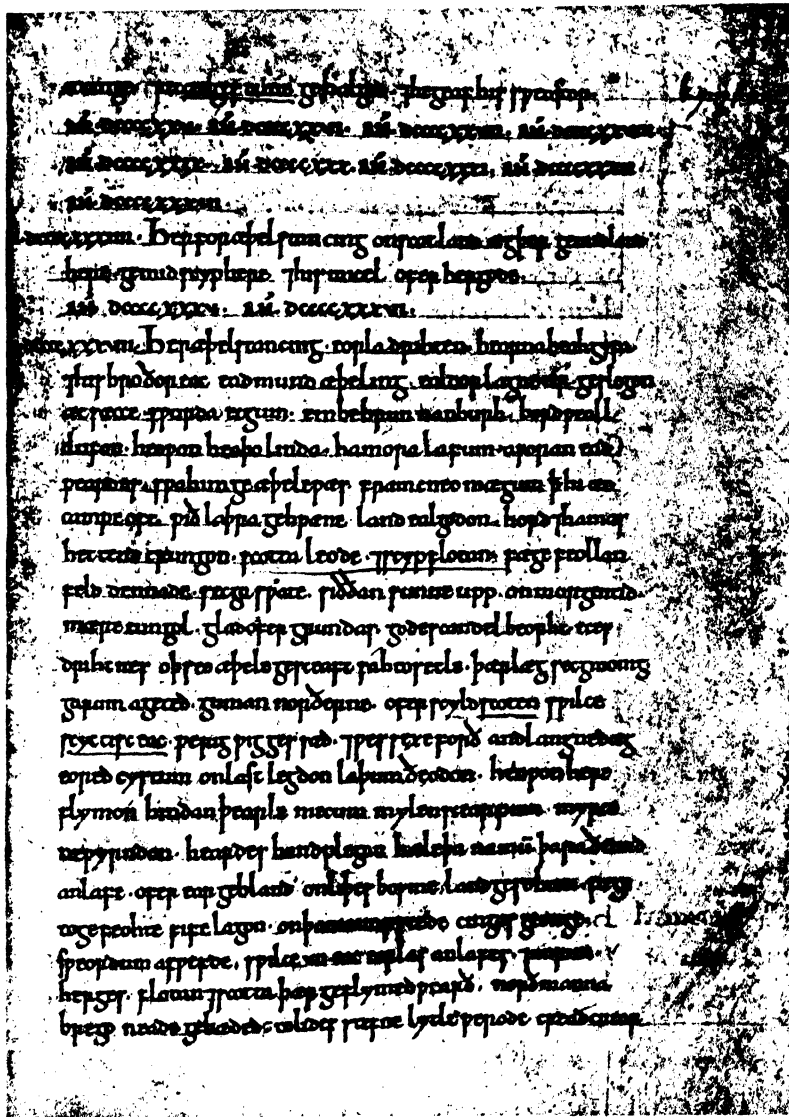 gehalgod ⁊ he geaf his sƿeostor
AN. DCCCCXXV. AN. DCCCCXXVI. AN. DCCCCXXVII. AN. DCCCCXXVIII.
AN. DCCCCXXIX. AN. DCCCCXXX. AN. DCCCCXXXI. AN. DCCCCXXXII.
AN. DCCCCXXXIII.
DCCCCXXXIIII. Her for æþelstan cing on scotland ægþer ge mid land
here ge mid scyphere ⁊ his micel oferhergode.
AN. DCCCCXXXV. AN. DCCCCXXXVI.
XXXVII. Her æþelstan cing eorla drihten beorna beahgifa
⁊ his broðor eac eadmund æþeling ealdorlangne geslogon
æt sæcce sƿurda ecgum embe brunnanburh bordƿeall
clufan heoƿon heaþolinda hamora lafum aforan ead
ƿeardes sƿa him geæþele ƿæs fram cneomagum þ hi æt
campe oft ƿið laþra gehƿæne land ealgodon hord ⁊ hamas
hettend crungon scotta leode ⁊ scypflotan fæge feollan
feld dennade secga sƿate siððan sunne upp on morgentid
mære tungol glad ofer grundas godes candel beorht eces
drihtnes oþ seo æþele gesceaft sah to setle þær læg secg monig
garum ageted guman norðerne ofer scyld scoten sƿilce
scyttisc eac ƿerig ƿigges sæd ⁊ ƿessexe forð andlangne dæg
eored cystum on last legdon laþum ðeodon heoƿon here
flymon hindan þearle mecum mylenscearpum myrce
ne ƿyrndon heardes handplegan hæleþa nanum þara ðe mid
anlafe ofer ear gebland on liþes bosme land gesohtan fæge
to gefeohte fife lagon on þam campstede cingas geonge
sƿeordum asƿefde sƿilce VII eac eorlas anlafes
herges flotan ⁊ scotta þær geflymed ƿearð norðmanna
brego neade gebæded to lides stefne lytle ƿerode